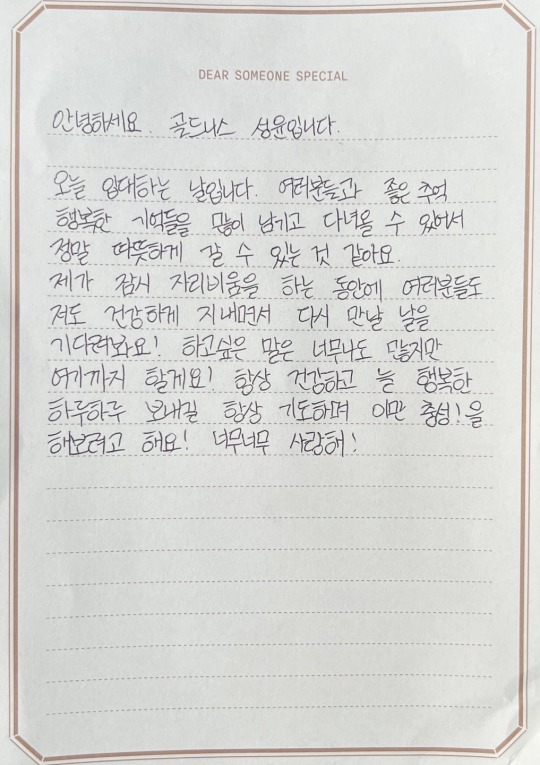 DEAR SOMEONE SPECIAL
안녕하세요. 골드니스 성윤입니다.
오늘 입대하는 날입니다. 여러분들과 좋은 추억
행복한 기억들을 많이 남기고 다녀올 수 있어서
정말 따뜻하게 갈 수 있는 것 같아요.
제가 잠시 자리비움을 하는 동안에 여러분들도
저도 건강하게 지내면서 다시 만날 날을
기다려봐요! 하고싶은 말은 너무나도 많지만
여기까지 할게요! 항상 건강하고 늘 행복한
하루하루 보내길 항상 기도하며 이만 충성!을
해보려고 해요! 너무너무 사랑해!